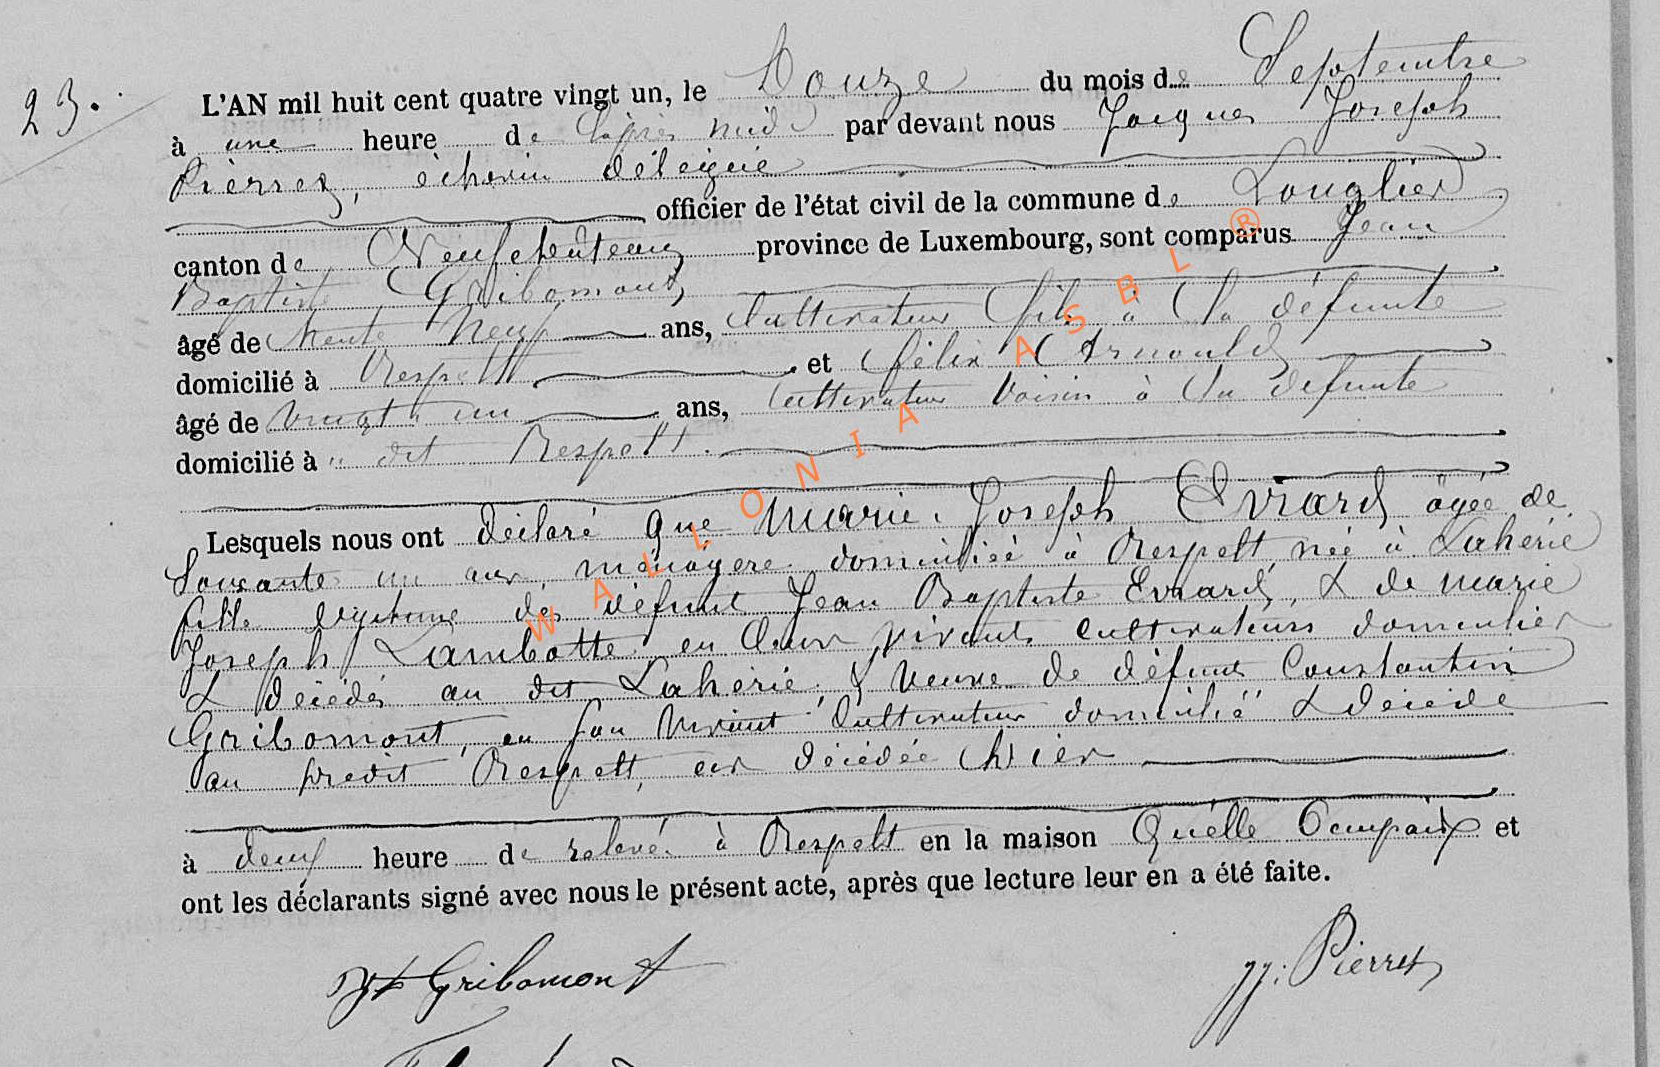 23.
L'AN mil huit cent quatre vingt un, le Douze du mois de Septembre
à une heure de l'après midi par devant nous Jacques Joseph
Pierret, échevin délégué
officier de l'état civil de la commune de Longlier
canton de Neufchâteau province de Luxembourg, sont comparus Jean
Baptiste Gribomont,
âgé de trente neuf ans, Cultivateur fils à la défunte
domicilié à Respelt et Félix Arnould
âgé de vingt un ans, Cultivateur Voisin à la défunte
domicilié à dit Respelt.
Lesquels nous ont déclaré que Marie Joseph Evrard âgée de
Soixante un ans, ménagère domiciliée à Respelt, née à Lahérie
fille légitime des défunt Jean Baptiste Evrard, & de Marie
Joseph Lambotte en leur vivant cultivateurs domiciliés
& décédés au dit Lahérie, & veuve de défunt Constantin
Gribomont, en son vivant Cultivateur domicilié & décédé
au prédit Respelt, est décédée hier
à deux heure de relevé à Respelt en la maison Quelle Occupait et
ont les déclarants signé avec nous le présent acte, après que lecture leur en a été faite.
Gribomont
JJ. Pierret
WALLONIA ASBL ®